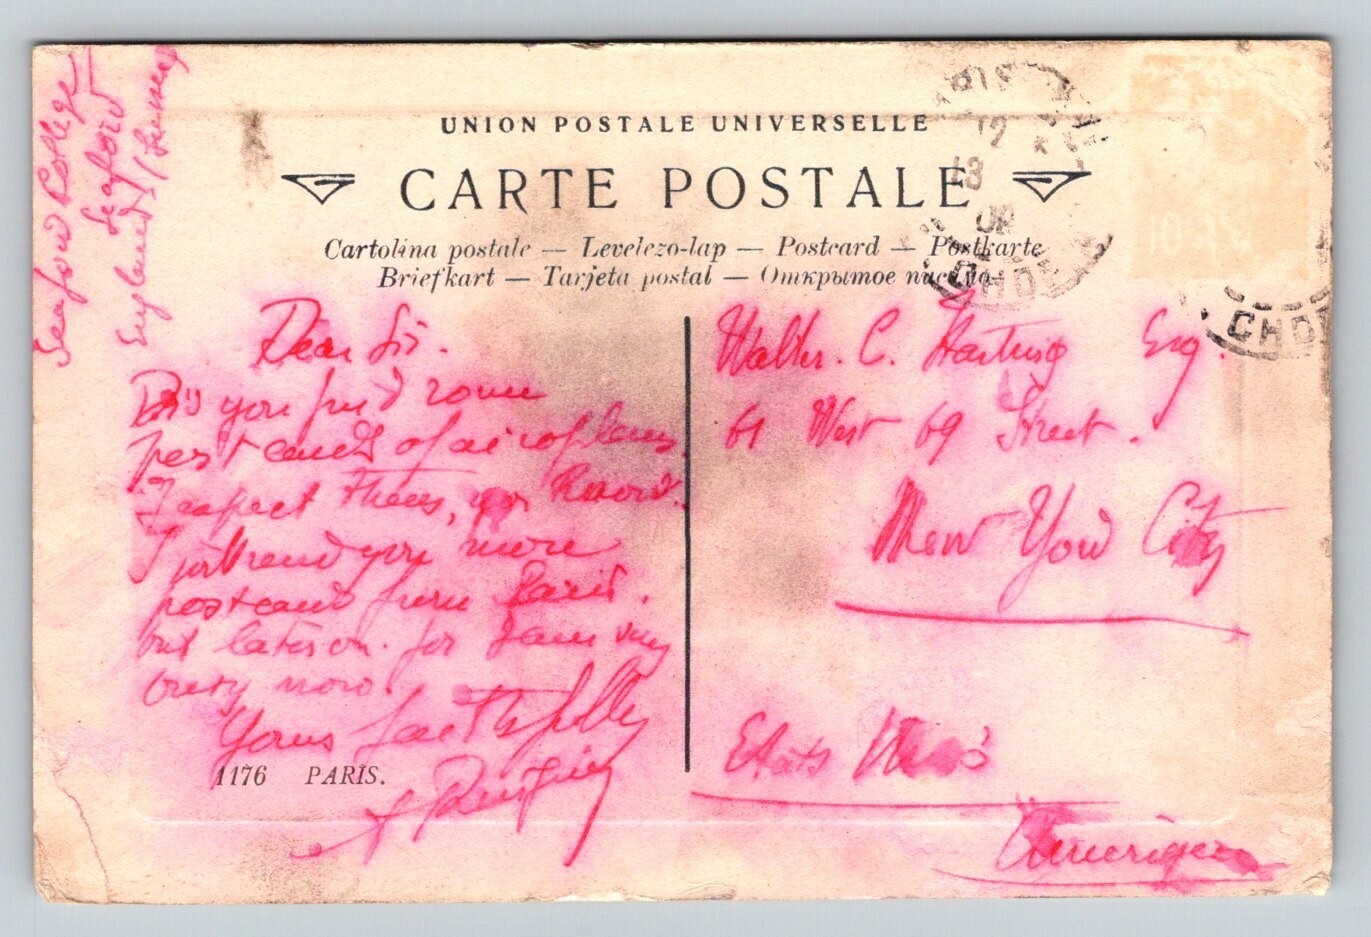 Seaford College
Seaford
England / Sussex
UNION POSTALE UNIVERSELLE
CARTE POSTALE
Cartolina postale — Levelezo-lap — Postcard — Postkarte
Briefkart — Tarjeta postal — Открытое письмо
Dear Sir.
you find some
post cards of aeroplanes
I expect them,
I will send you more
postcard from Paris.
but later on. for I am very
busy now.
Yours faithfully
1176 PARIS.
Walter. C. Hartung Esq.
61 West 69 Street.
New York City
Etats Unis
Amerique
PARIS
12
13
09
CHDE
CHDE